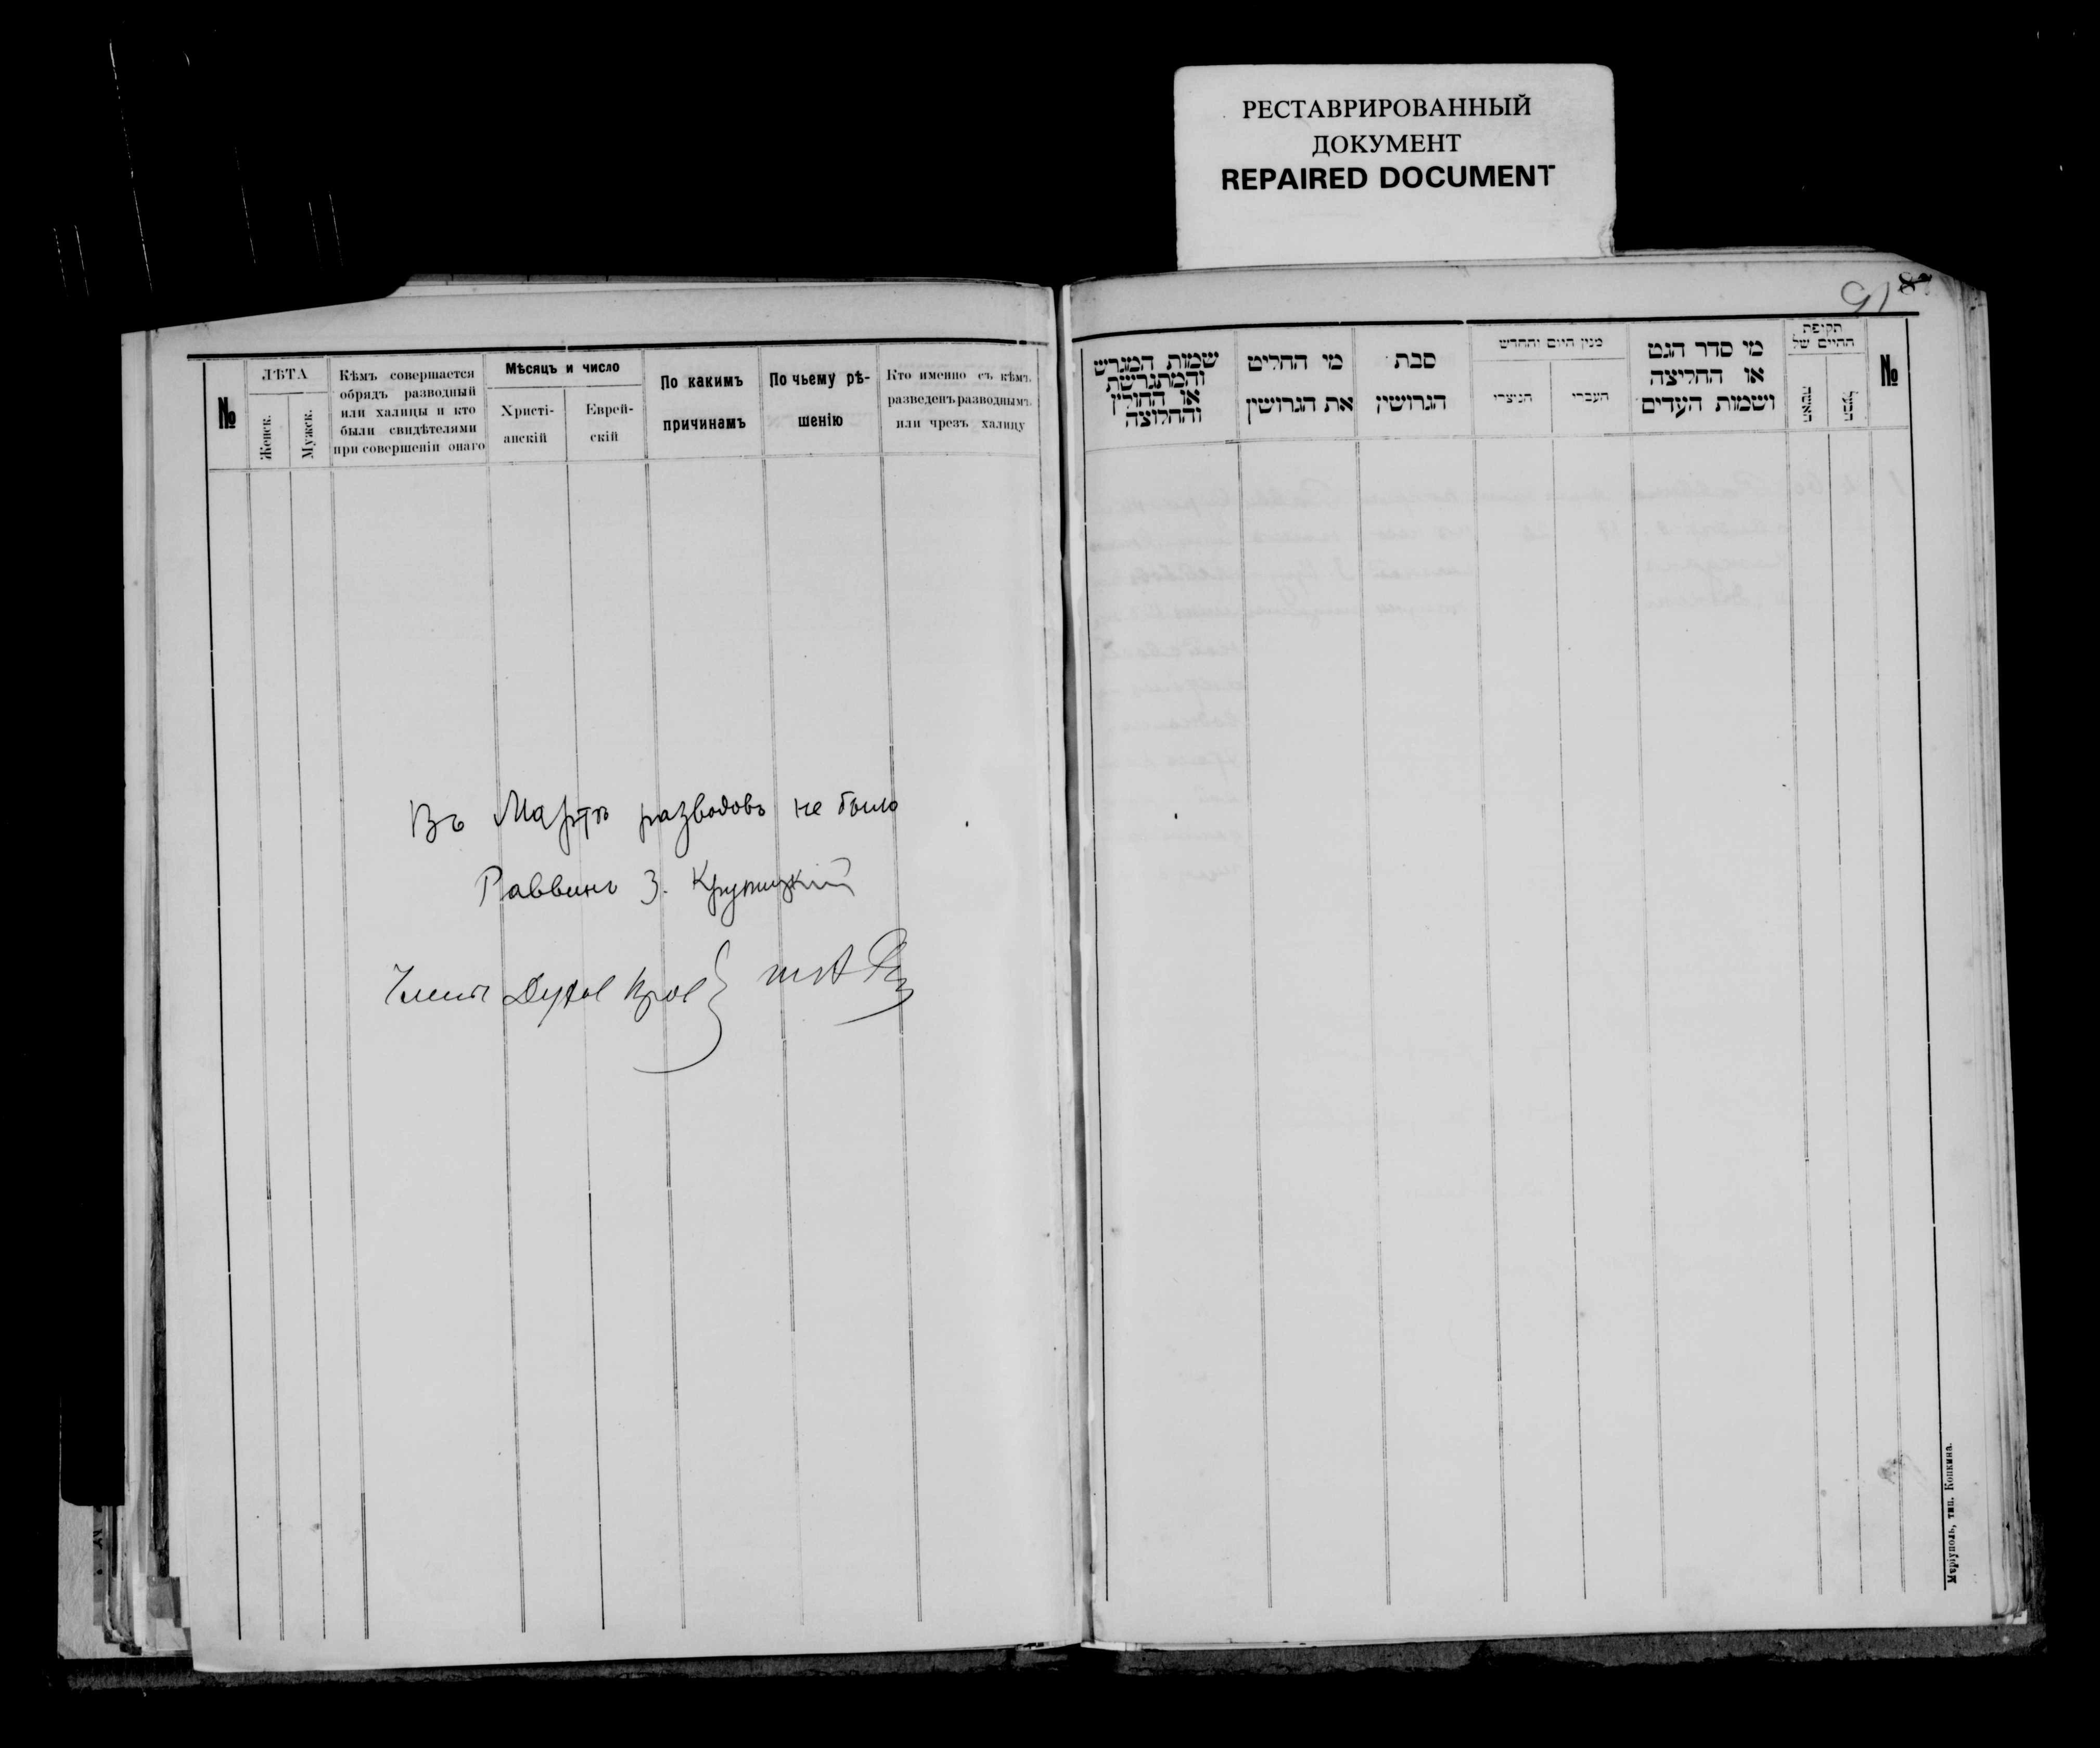 РЕСТАВРИРОВАННЫЙ
ДОКУМЕНТ
REPAIRED DOCUMENT
91
№
ЛѢТА
Женск.
Мужск.
Кѣмъ совершается
обрядъ разводный
или халицы и кто
были свидѣтелями
при совершеніи онаго
Мѣсяцъ и число
Христі-
анскій
Еврей-
скій
По какимъ
причинамъ
По чьему рѣ-
шенію
Кто именно съ кѣмъ
разведенъ разводнымъ
или чрезъ халицу
Въ Мартѣ разводовъ не было
Раввинъ З. Крупицкій
שמות המגרש
והמתגרשת
או החולץ
והחלוצה
מי החליט
את הגרושין
סבת
הגרושין
מנין היום והחדש
הנוצרי
העברי
מי סדר הגט
או החליצה
ושמות העדים
תקופת
החיים של
האשה
הבעל
№
Маріуполь, тип. Копкина.